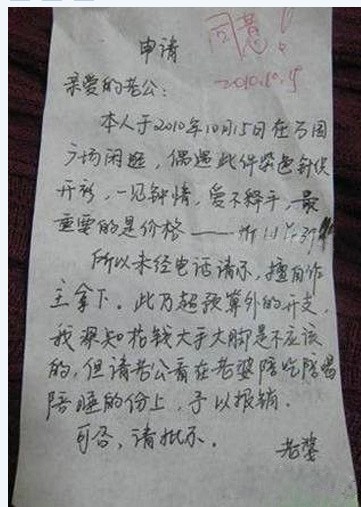 申请
同意！
2010.10.15
亲爱的老公：
本人于2010年10月15日在万国
广场闲逛，偶遇此件紫色针织
开衫，一见钟情，爱不释手，最
重要的是价格——
所以未经电话请示，擅自作
主拿下。此乃超预算外的开支，
我深知花钱大手大脚是不应该
的，但请老公看在老婆陪吃陪喝
陪睡的份上，予以报销。
可否，请批示。
老婆